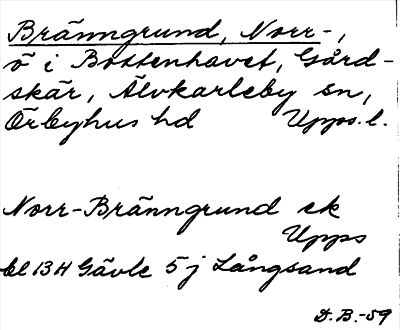 Bränngrund, Norr-,
ö i Bottenhavet, Gård-
skär, Älvkarleby sn,
Örbyhus hd Upps. l.
Norr-Bränngrund ek
Upps
bl 13H Gävle 5 j Långsand
D.B.-59